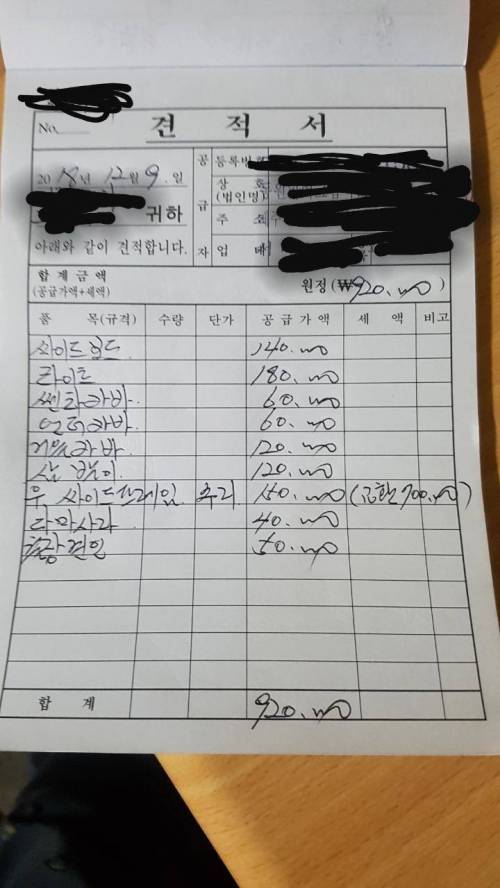 No.
견 적 서
2018년 12월 9. 일
귀하
아래와 같이 견적합니다.
공급자
등록번호
상 호
(법인명)
주 소
업 태
합계금액
(공급가액+세액)
원정 (₩920.000)
품 목(규격) 수량 단가 공급가액 세 액 비고
싸이드 140.000
라이트 180.000
쎈타카바 60.000
언더카바 60.000
카바 120.000
120.000
우. 싸이드프레임 수리 150.000 (교환 700.000)
다와사라 40.000
견인 50.000
합 계 920.000